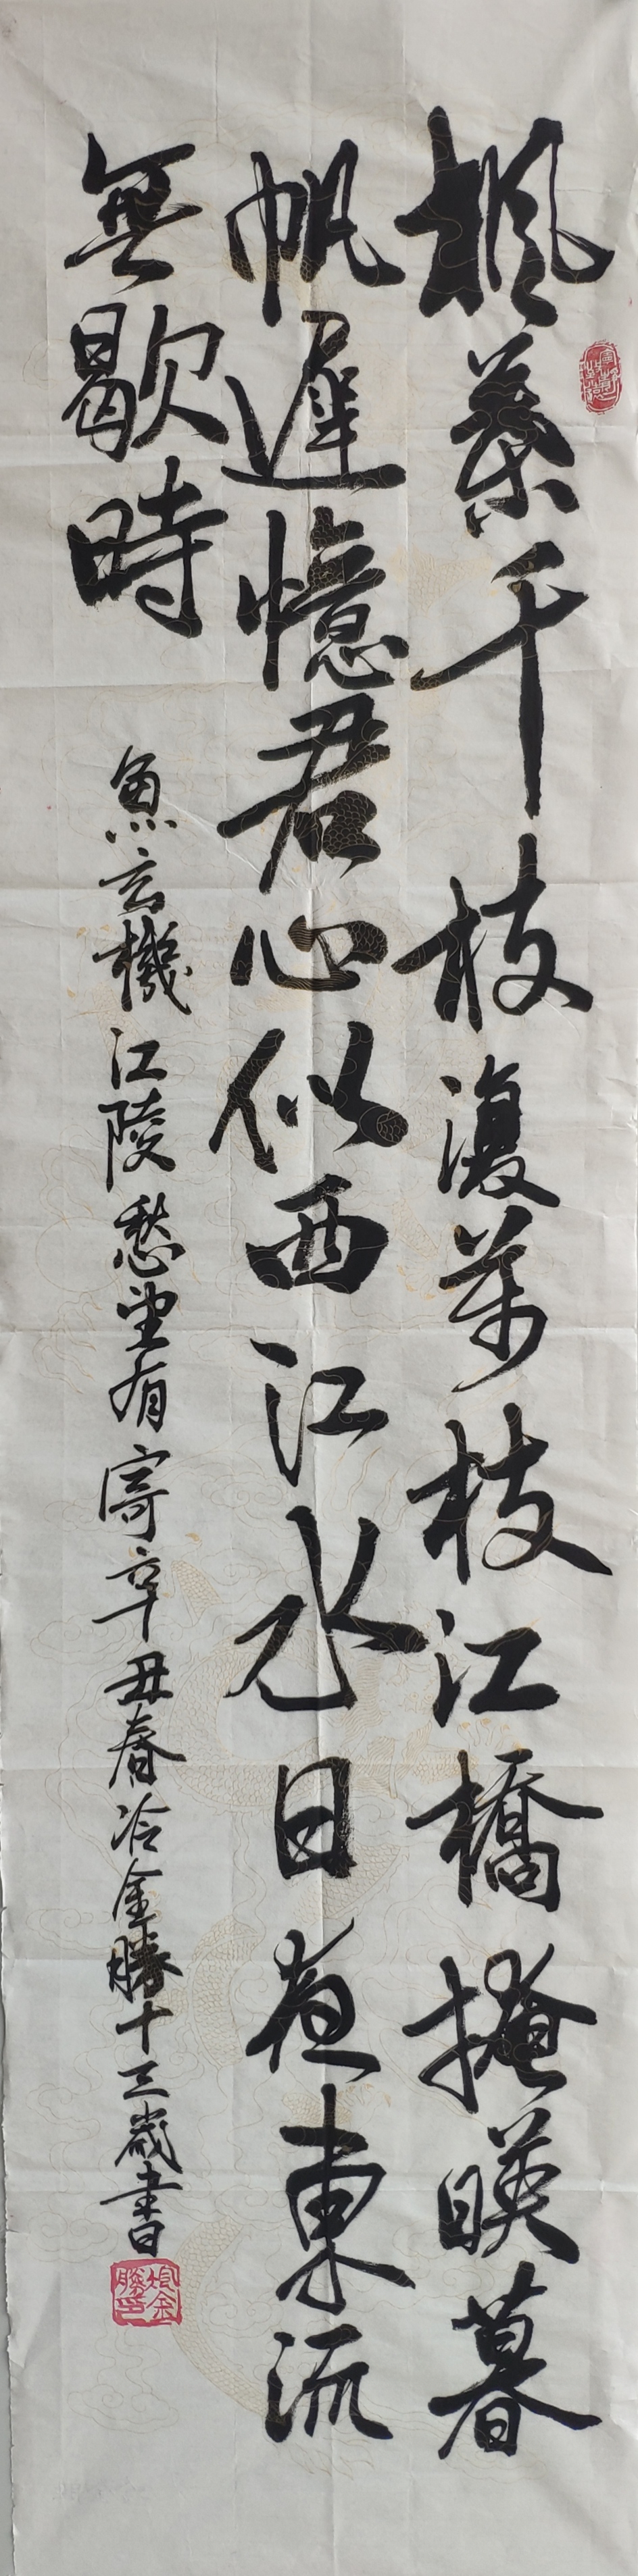 楓葉千枝復萬枝江橋掩暎暮
帆遲憶君心似西江水日夜東流
無歇時
魚玄機江陵愁望有寄辛丑春冷金勝十三歲書